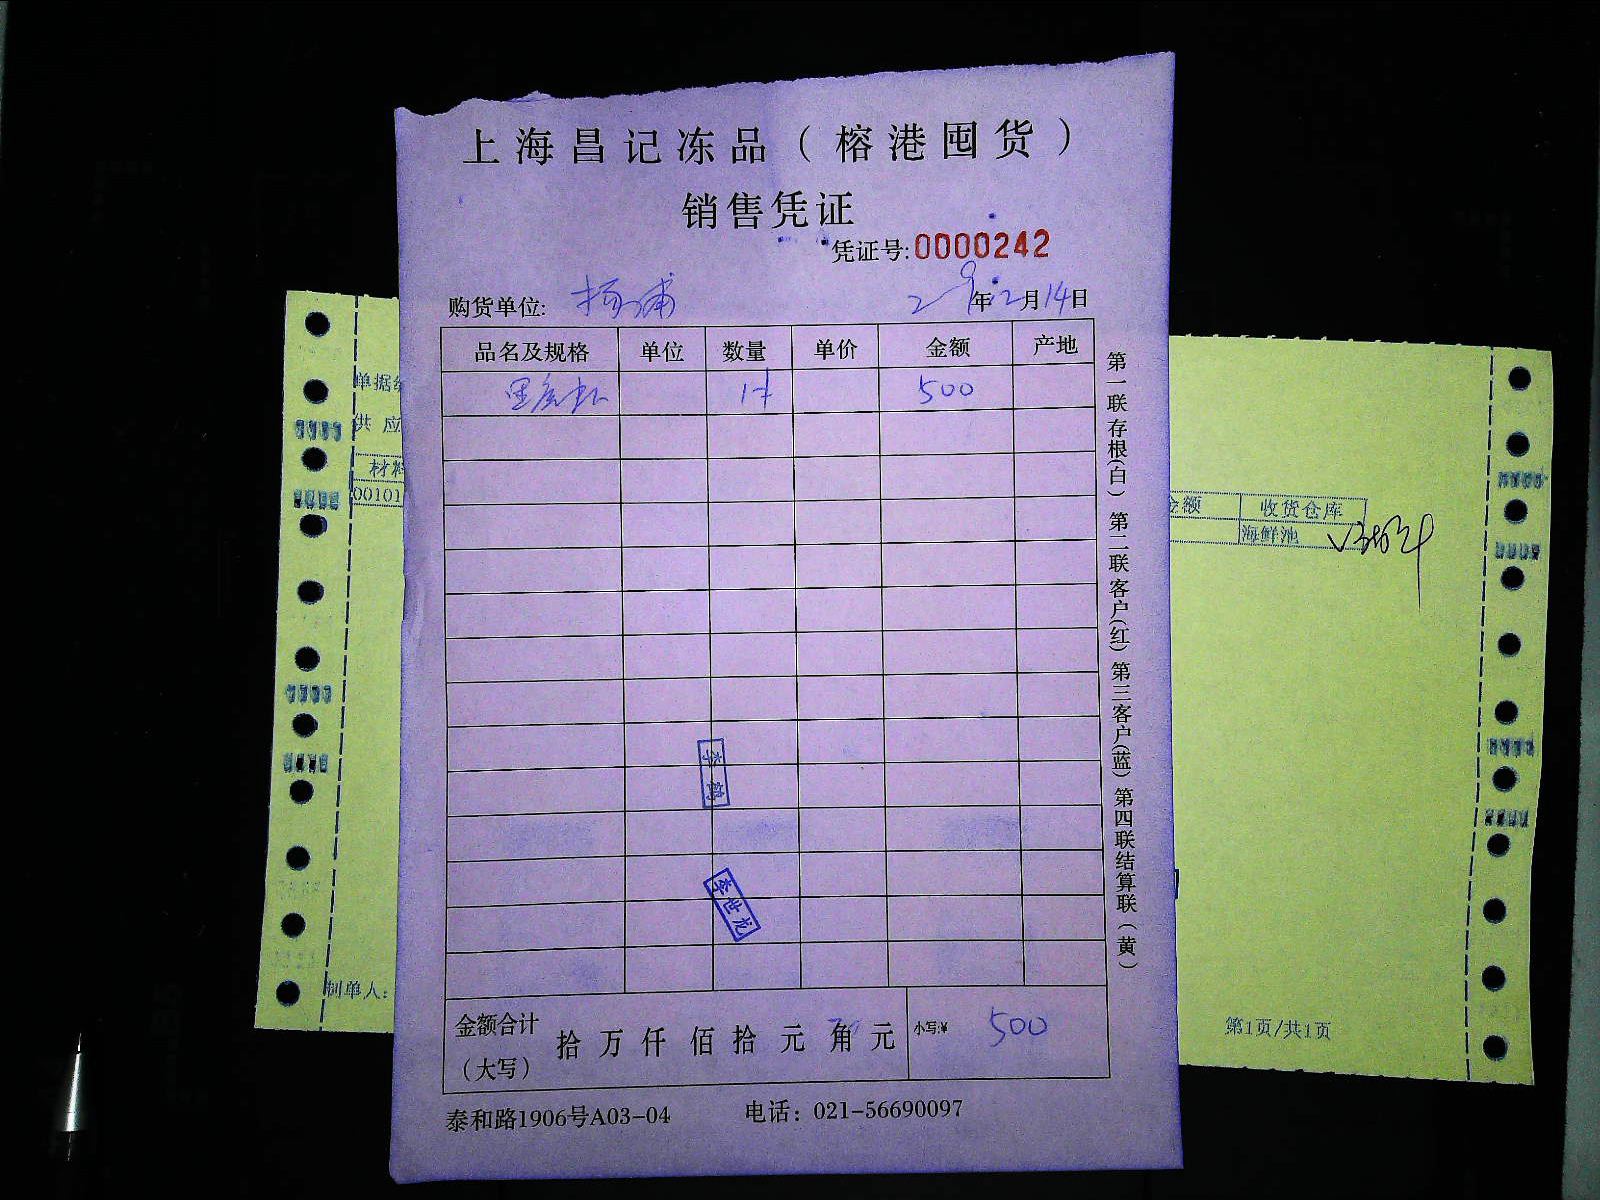 上海昌记冻品（榕港囤货）
销售凭证
凭证号:0000242
购货单位: 杨浦 年2月14日
品名及规格 单位 数量 单价 金额 产地
黑虎虾 1件 500
金额合计（大写） 拾 万 仟 佰 拾 元 角 元 小写:¥ 500
泰和路1906号A03-04 电话：021-56690097
第一联存根（白）第二联客户（红）第三客户（蓝）第四联结算联（黄）
李
李世龙
单据
供 应
材料
00101
制单人:
金额 收货仓库
海鲜池
第1页/共1页